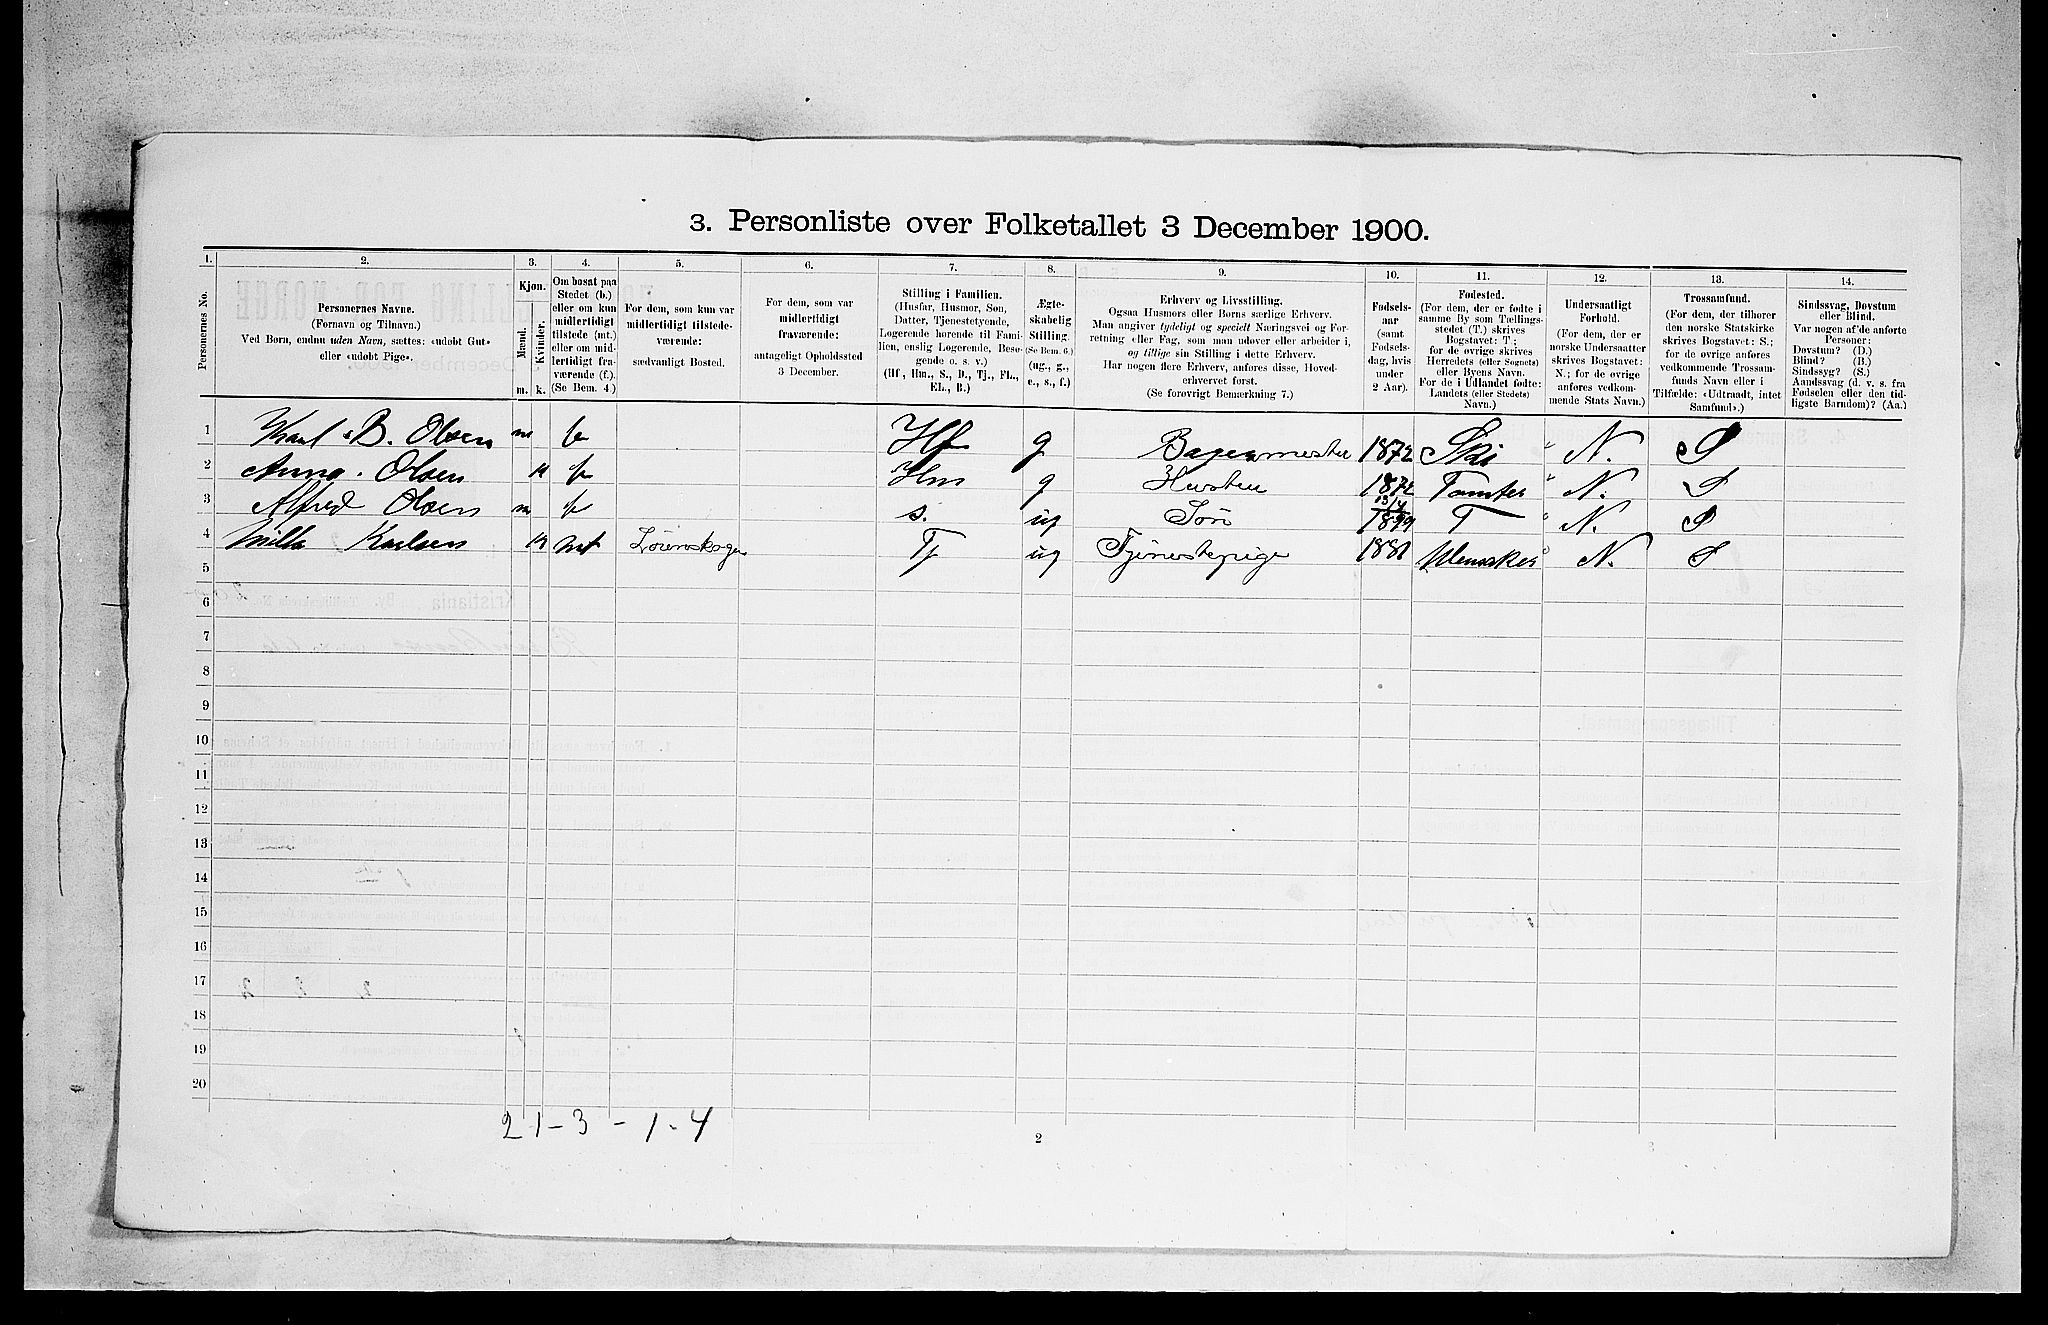 3. Personliste over Folketallet 3 December 1900.
1. 2. 3. 4. 5. 6. 7. 8. 9. 10. 11. 12. 13. 14.
Personernes No.
Personernes Navne.
(Fornavn og Tilnavn.)
Ved Børn, endnu uden Navn, sættes: «udøbt Gut»
eller «udøbt Pige».
Kjøn.
Mænd.
Kvinder.
m. k.
Om bosat paa
Stedet (b.)
eller om kun
midlertidigt
tilstede (mt.)
eller om mid-
lertidigt fra-
værende (f.).
(Se Bem. 4.)
For dem, som kun var
midlertidigt tilstede-
værende:
sædvanligt Bosted.
For dem, som var
midlertidigt
fraværende:
antageligt Opholdssted
3 December.
Stilling i Familien.
(Husfar, Husmor, Søn,
Datter, Tjenestetyende,
Logerende hørende til Fami-
lien, enslig Logerende, Besø-
gende o. s. v.)
(Hf, Hm., S., D., Tj., FL.,
EL., B.)
Ægte-
skabelig
Stilling.
(Se Bem. 6.)
(ug., g.,
e., s., f.)
Erhverv og Livsstilling.
Ogsaa Husmors eller Børns særlige Erhverv.
Man angiver tydeligt og specielt Næringsvei og For-
retning eller Fag, som man udøver eller arbeider i,
og tillige sin Stilling i dette Erhverv.
Har nogen flere Erhverv, anføres disse, Hoved-
erhvervet først.
(Se forøvrigt Bemærkning 7.)
Fødsels-
aar
(samt
Fødsels-
dag, hvis
under
2 Aar).
Fødested.
(For dem, der er fødte i
samme By som Tællings-
stedet (T.) skrives
Bogstavet: T;
for de øvrige skrives
Herredets (eller Sognets)
eller Byens Navn.
For de i Udlandet fødte:
Landets (eller Stedets)
Navn.)
Undersaatligt
Forhold.
(For dem, der er
norske Undersaatter
skrives Bogstavet:
N.; for de øvrige
anføres vedkom-
mende Stats Navn.)
Trossamfund.
(For dem, der tilhører
den norske Statskirke
skrives Bogstavet: S.;
for de øvrige anføres
vedkommende Trossam-
funds Navn eller i
Tilfælde: «Udtraadt, intet
Samfund».)
Sindssvag, Døvstum
eller Blind.
Var nogen af de anførte
Personer:
Døvstum? (D.)
Blind? (B.)
Sindssyg? (S.)
Aandssvag (d. v. s. fra
Fødselen eller den tid-
ligste Barndom)? (Aa.)
1 Karl B. Olsen m b Hf g Bagermester 1872 Ski N. S
2 Anna Olsen k b Hm g Hustru 1872 Tomter N. S
3 Alfred Olsen m b s. ug Søn 1899 T N. S
4 Milla Karlsen k mt Lørenskogen Tj ug Tjenestepige 1881 N. S
5
6
7
8
9
10
11
12
13
14
15
16
17
18
19
20
21-3-1-4
2